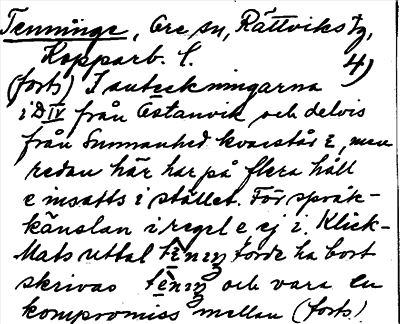 Tenninge, Ore sn, Rättviks tg,
Kopparb. l. 4)
(forts) I anteckningarna
i D IV från Östanvik och delvis
från Sunnanhed kvarstår i, men
redan här har på flera håll
e insatts i stället. För språk-
känslan i regel e ej i. Klick-
Mats uttal torde ha bort
skrivas och vara en
kompromiss mellan (forts)